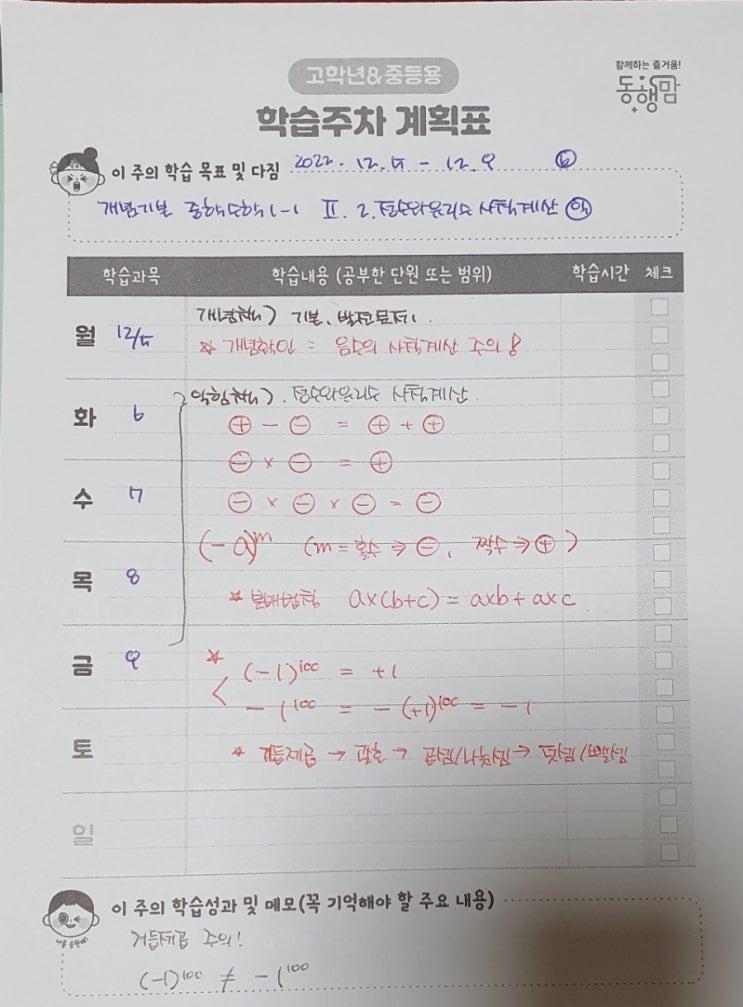 고학년&중등용
함께하는 즐거움!
동행맘
학습주차 계획표
이 주의 학습 목표 및 다짐 2022. 12. 5 - 12. 9
개념기본 중학수학 1-1 Ⅱ. 2. 정수와 유리수 사칙계산
학습과목 학습내용 (공부한 단원 또는 범위) 학습시간 체크
월 12/5 개념책) 기본, 발전문제.
* 개념확인 = 음수의 사칙계산 주의!
화 6 익힘책). 정수와 유리수 사칙계산.
⊕ - ⊖ = ⊕ + ⊕
⊖ × ⊖ = ⊕
수 7 ⊖ × ⊖ × ⊖ = ⊖
(-a)^m (m = 홀수 ⇒ ⊖, 짝수 ⇒ ⊕)
목 8 * 분배법칙 a×(b+c) = a×b + a×c
금 9 * (-1)^100 = +1
-1^100 = -(+1)^100 = -1
토 * 거듭제곱 → 괄호 → 곱셈/나눗셈 → 덧셈/뺄셈
일
이 주의 학습성과 및 메모(꼭 기억해야 할 주요 내용)
거듭제곱 주의!
(-1)^100 ≠ -1^100